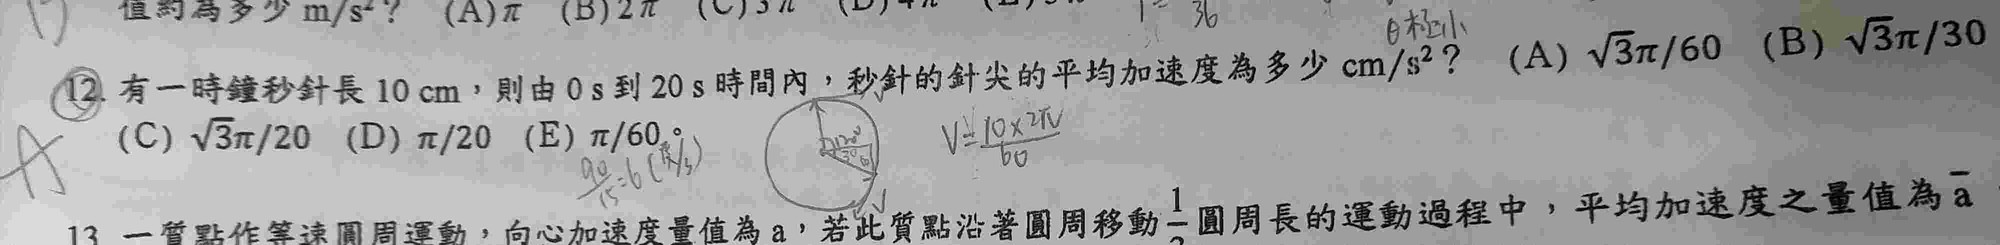 值約為多少 m/s²? (A)π (B)2π (C)3π (D)4π
36
θ極小
12. 有一時鐘秒針長 10 cm,則由 0 s 到 20 s 時間內,秒針的針尖的平均加速度為多少 cm/s²? (A) √3π/60 (B) √3π/30
(C) √3π/20 (D) π/20 (E) π/60。
A
90/15=6
120°
V=10×2π/60
13. 一質點作等速圓周運動,向心加速度量值為 a,若此質點沿著圓周移動 1/ 圓周長的運動過程中,平均加速度之量值為 a̅